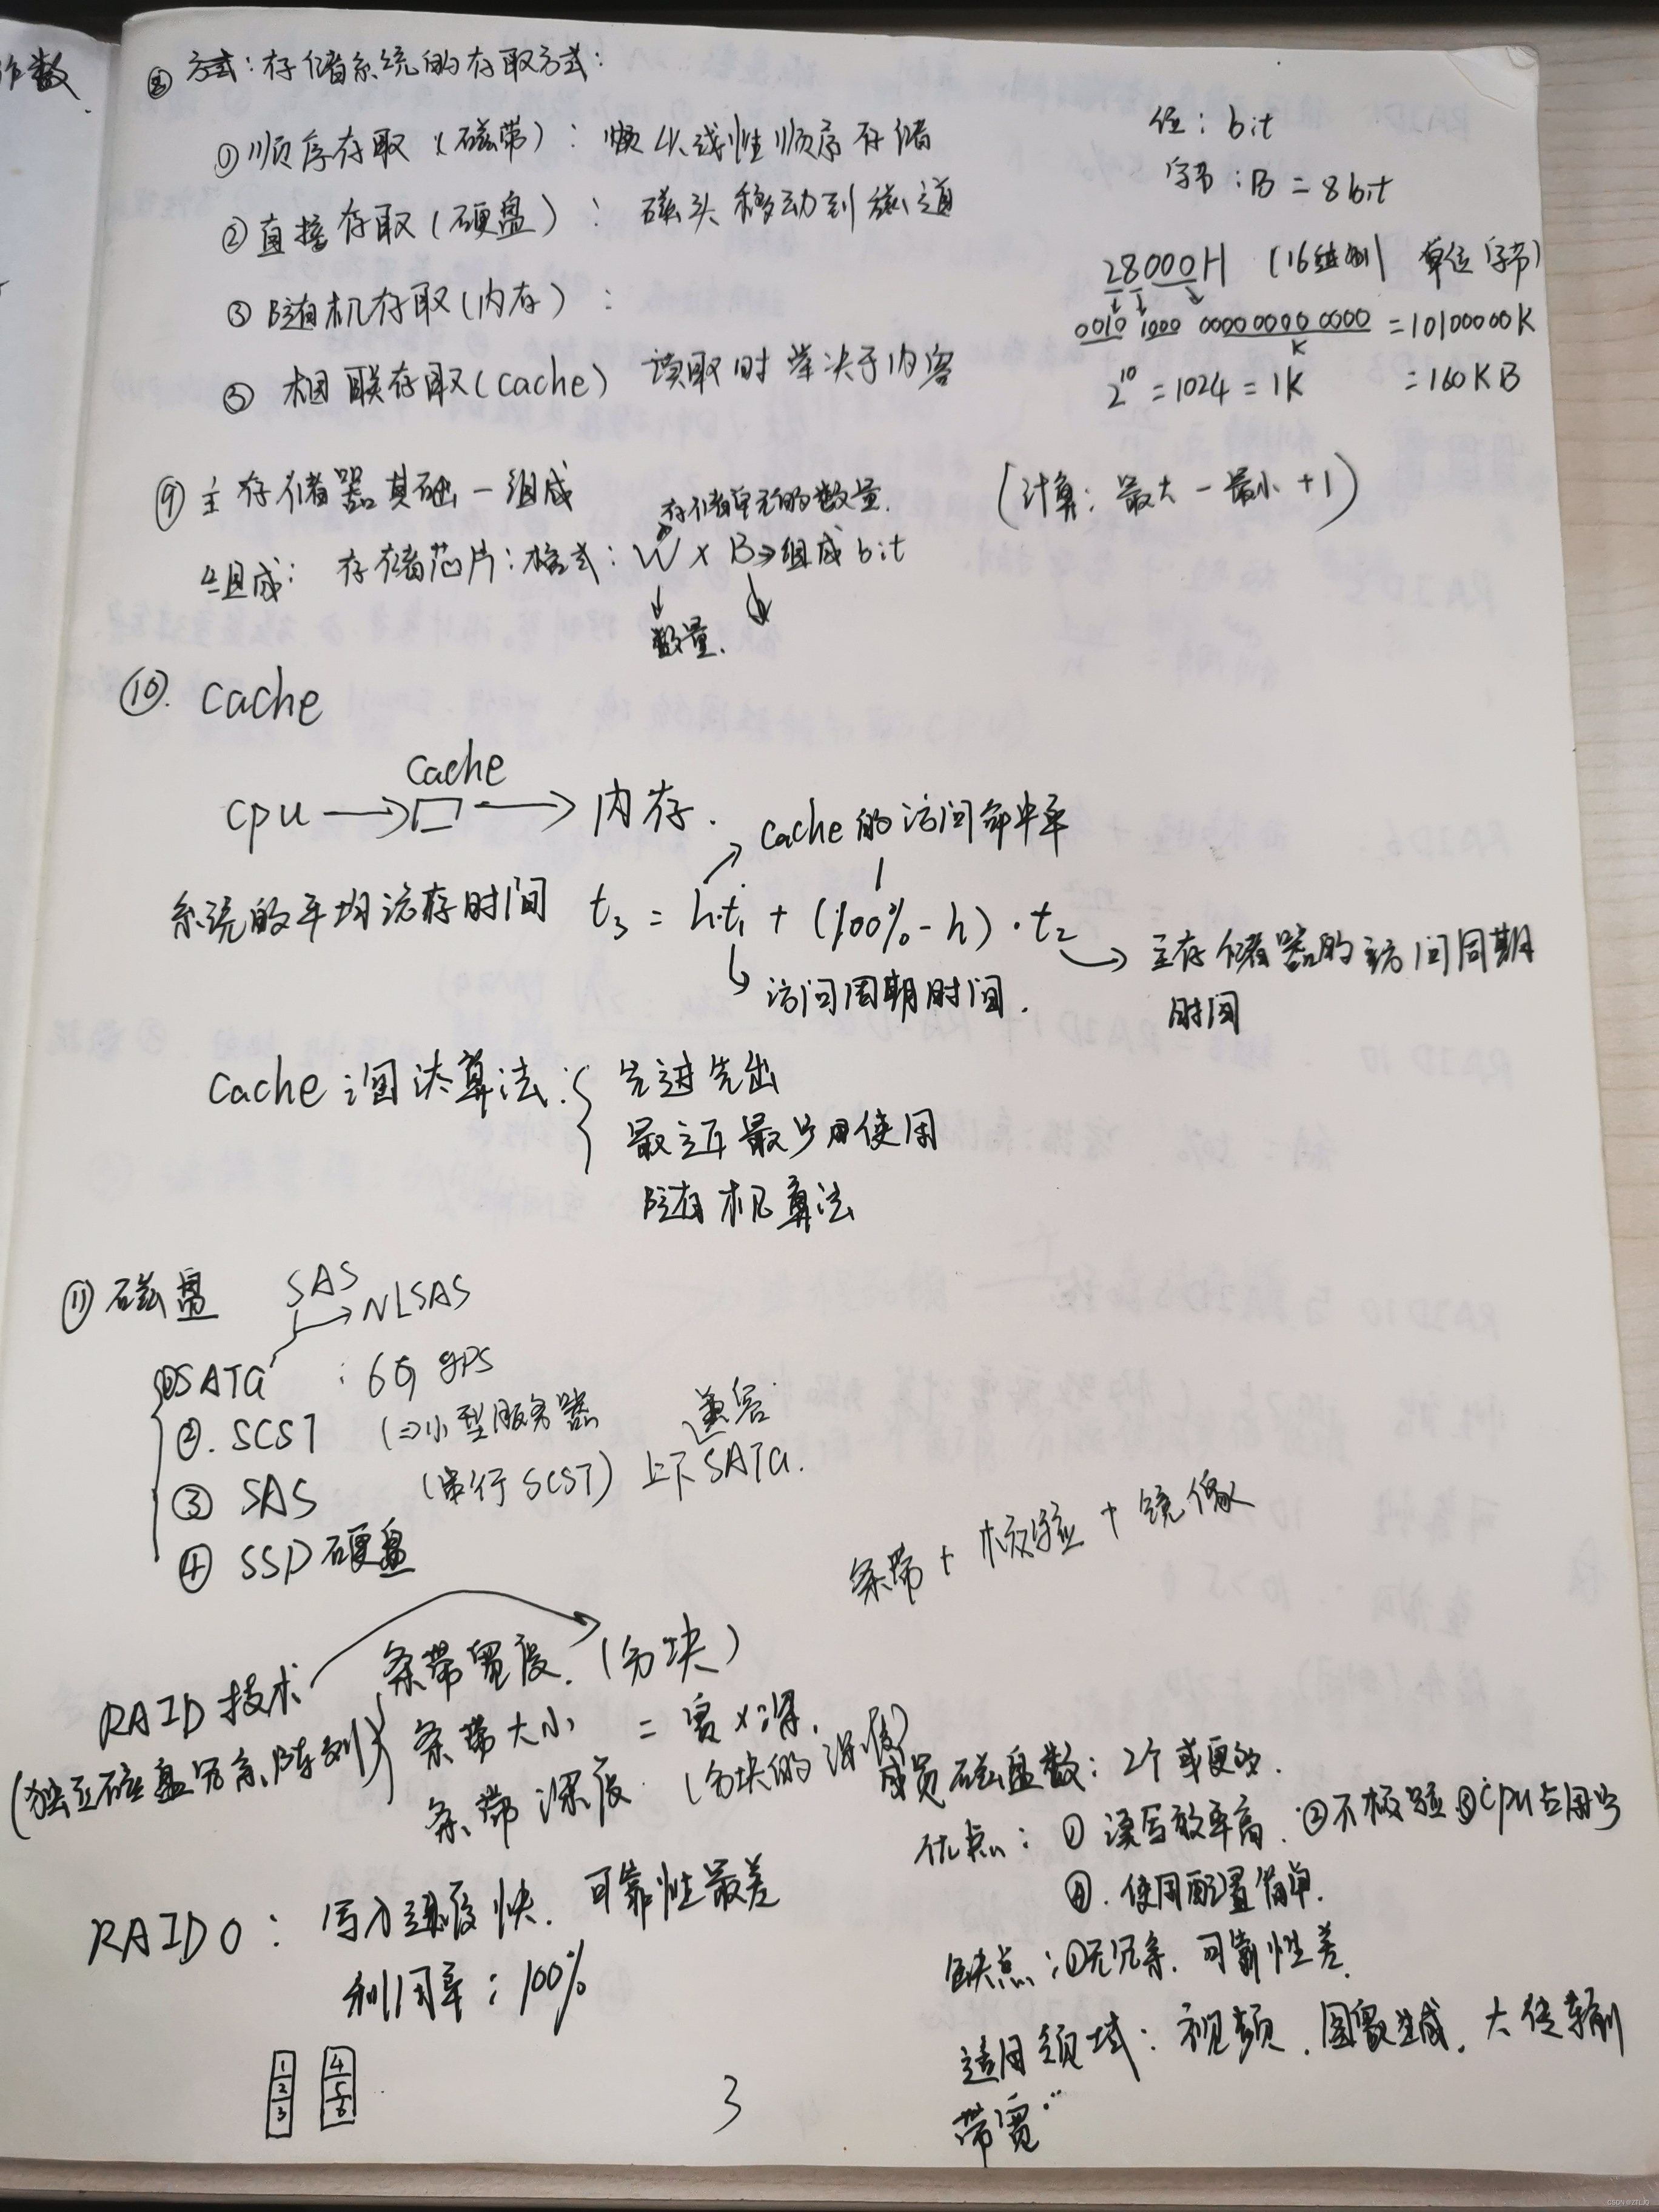 作数
⑧ 方式：存储系统的存取方式：
①顺序存取（磁带）：惯以线性顺序存储
②直接存取（硬盘）：磁头移动到磁道
③随机存取（内存）：
⑤相联存取（cache） 读取时 决于内容
位：bit
字节：B = 8bit
28000H （16进制 单位字节）
0010 1000 0000 0000 0000 = 10100000K
K
2^10 = 1024 = 1K = 160KB
（计算：最大 - 最小 + 1）
⑨ 主存储器基础－组成
存储单元的数量.
组成：存储芯片：格式：W × B → 组成bit
数量.
⑩. cache
cache
cpu → → 内存.
cache的访问命中率
系统的平均访存时间 t3 = h·t1 + (100% - h)·t2 → 主存储器的访问周期
时间
访问周期时间.
cache淘汰算法：先进先出
最近最少用使用
随机算法
⑪磁盘 SAS
→ NLSAS
①SATa : 6G gps
②. SCST (⇒小型服务器
兼容
③ SAS （串行SCST）上下SATa.
④ SSD硬盘
条带 + 校验 + 镜像
RAID技术
（独立磁盘冗余阵列）
条带宽度.（分块）
条带大小 = 宽×深.
条带深度.（分块的深度）
成员磁盘数：2个或更多.
优点：①读写效率高.②不校验③cpu占用少
④.使用配置简单.
缺点：①无冗余.可靠性差.
适用领域：视频.图象生成.大传输
带宽..
RAID0：写入速度快.可靠性最差
利用率：100%
1 4
2 5
3 6
3
CSDN @ZTLJQ